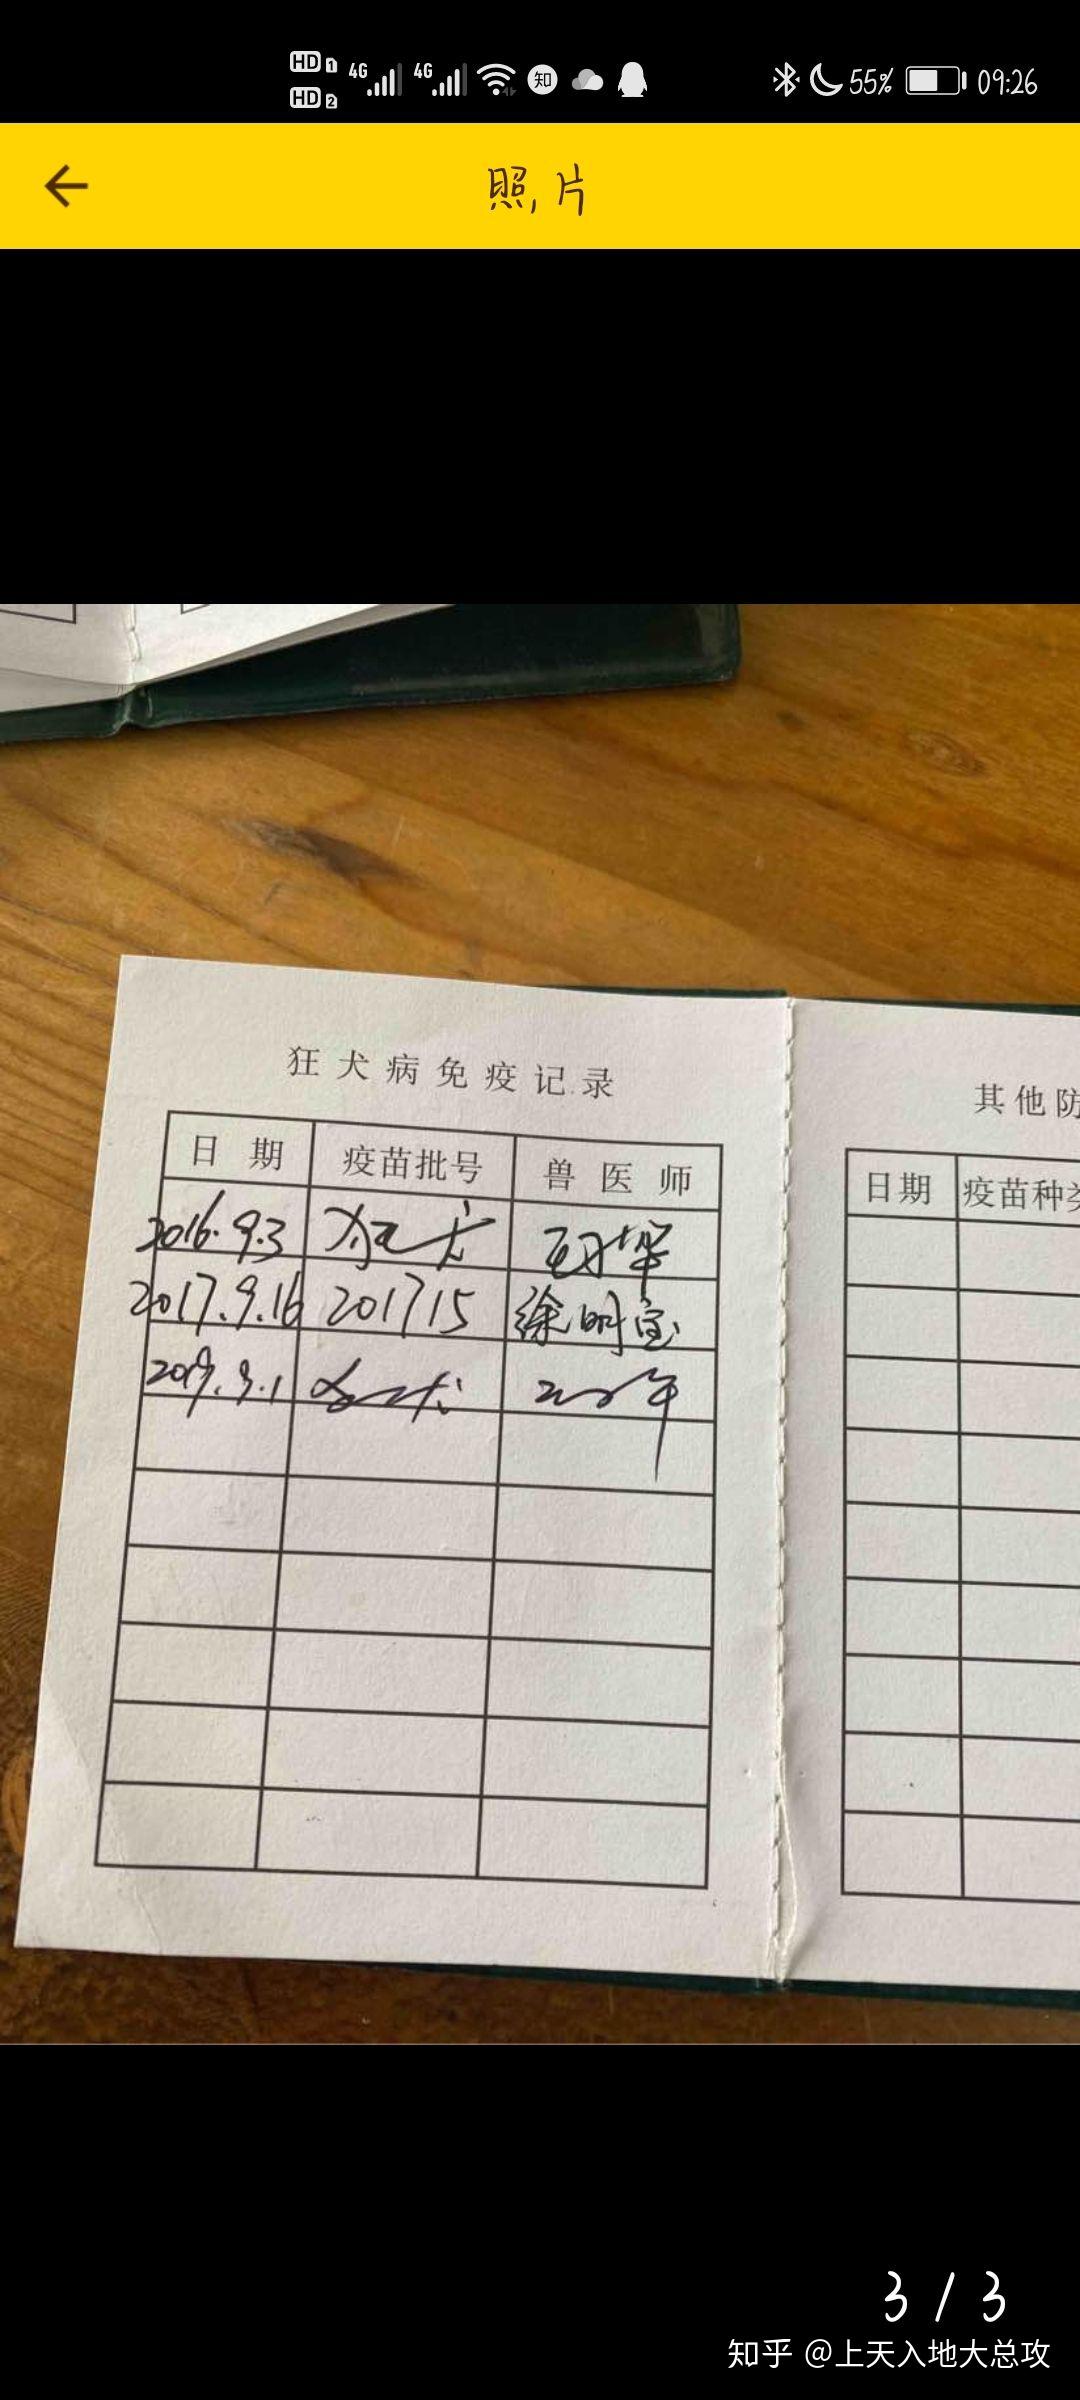 HD 1 4G 4G 知 55% 09:26
HD 2
照片
狂犬病免疫记录
其他防
日期 疫苗批号 兽医师
日期 疫苗种类
2016.9.3 狂犬
2017.9.16 201715 徐明宝
2019.9.1
3/3
知乎 @上天入地大总攻